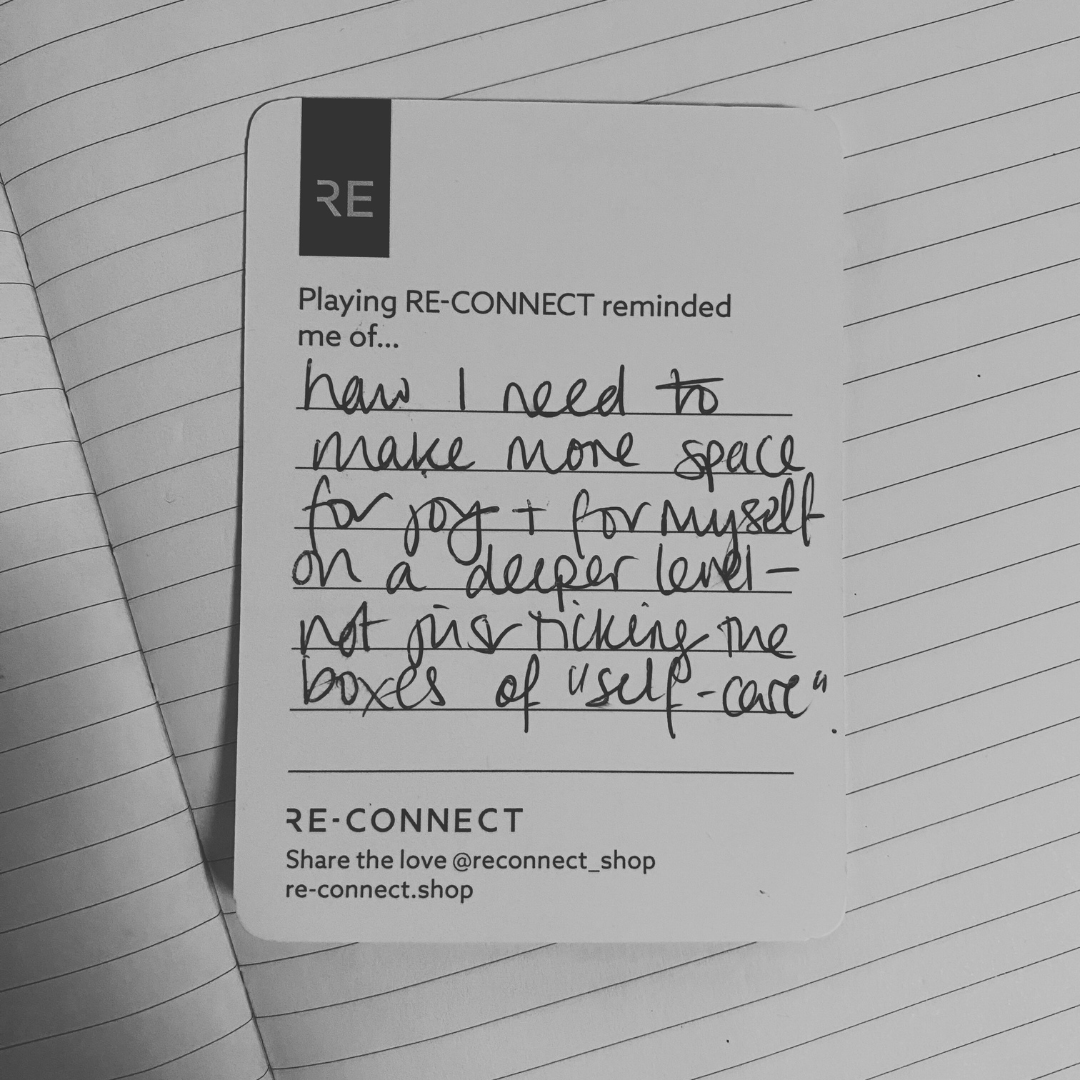 RE
Playing RE-CONNECT reminded
me of...
how I need to
make more space
for joy + for myself
on a deeper level -
not just ticking the
boxes of "self-care".
RE-CONNECT
Share the love @reconnect_shop
re-connect.shop